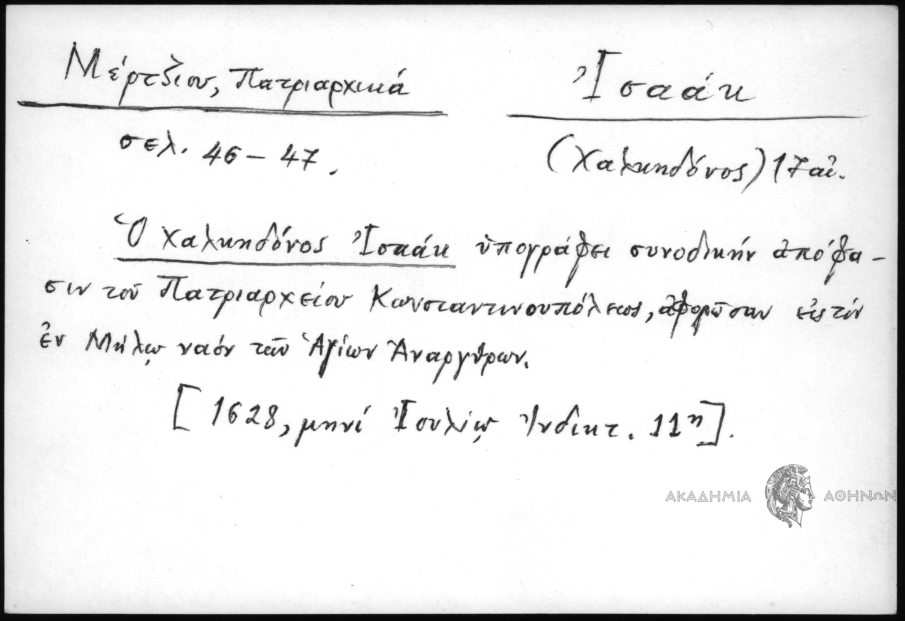 Μέρτζιου, Πατριαρχικά
Ἰσαάκ
σελ. 46 – 47.
(Χαλκηδόνος) 17 αἰ.
Ὁ Χαλκηδόνος Ἰσαάκ ὑπογράφει συνοδικήν ἀπόφα-
σιν τοῦ Πατριαρχείου Κωνσταντινουπόλεως, ἀφορῶσαν εἰς τόν
ἐν Μήλῳ ναόν τῶν Ἁγίων Ἀναργύρων.
[1628, μηνί Ἰουλίῳ Ἰνδικτ. 11η].
ΑΚΑΔΗΜΙΑ ΑΘΗΝΩΝ